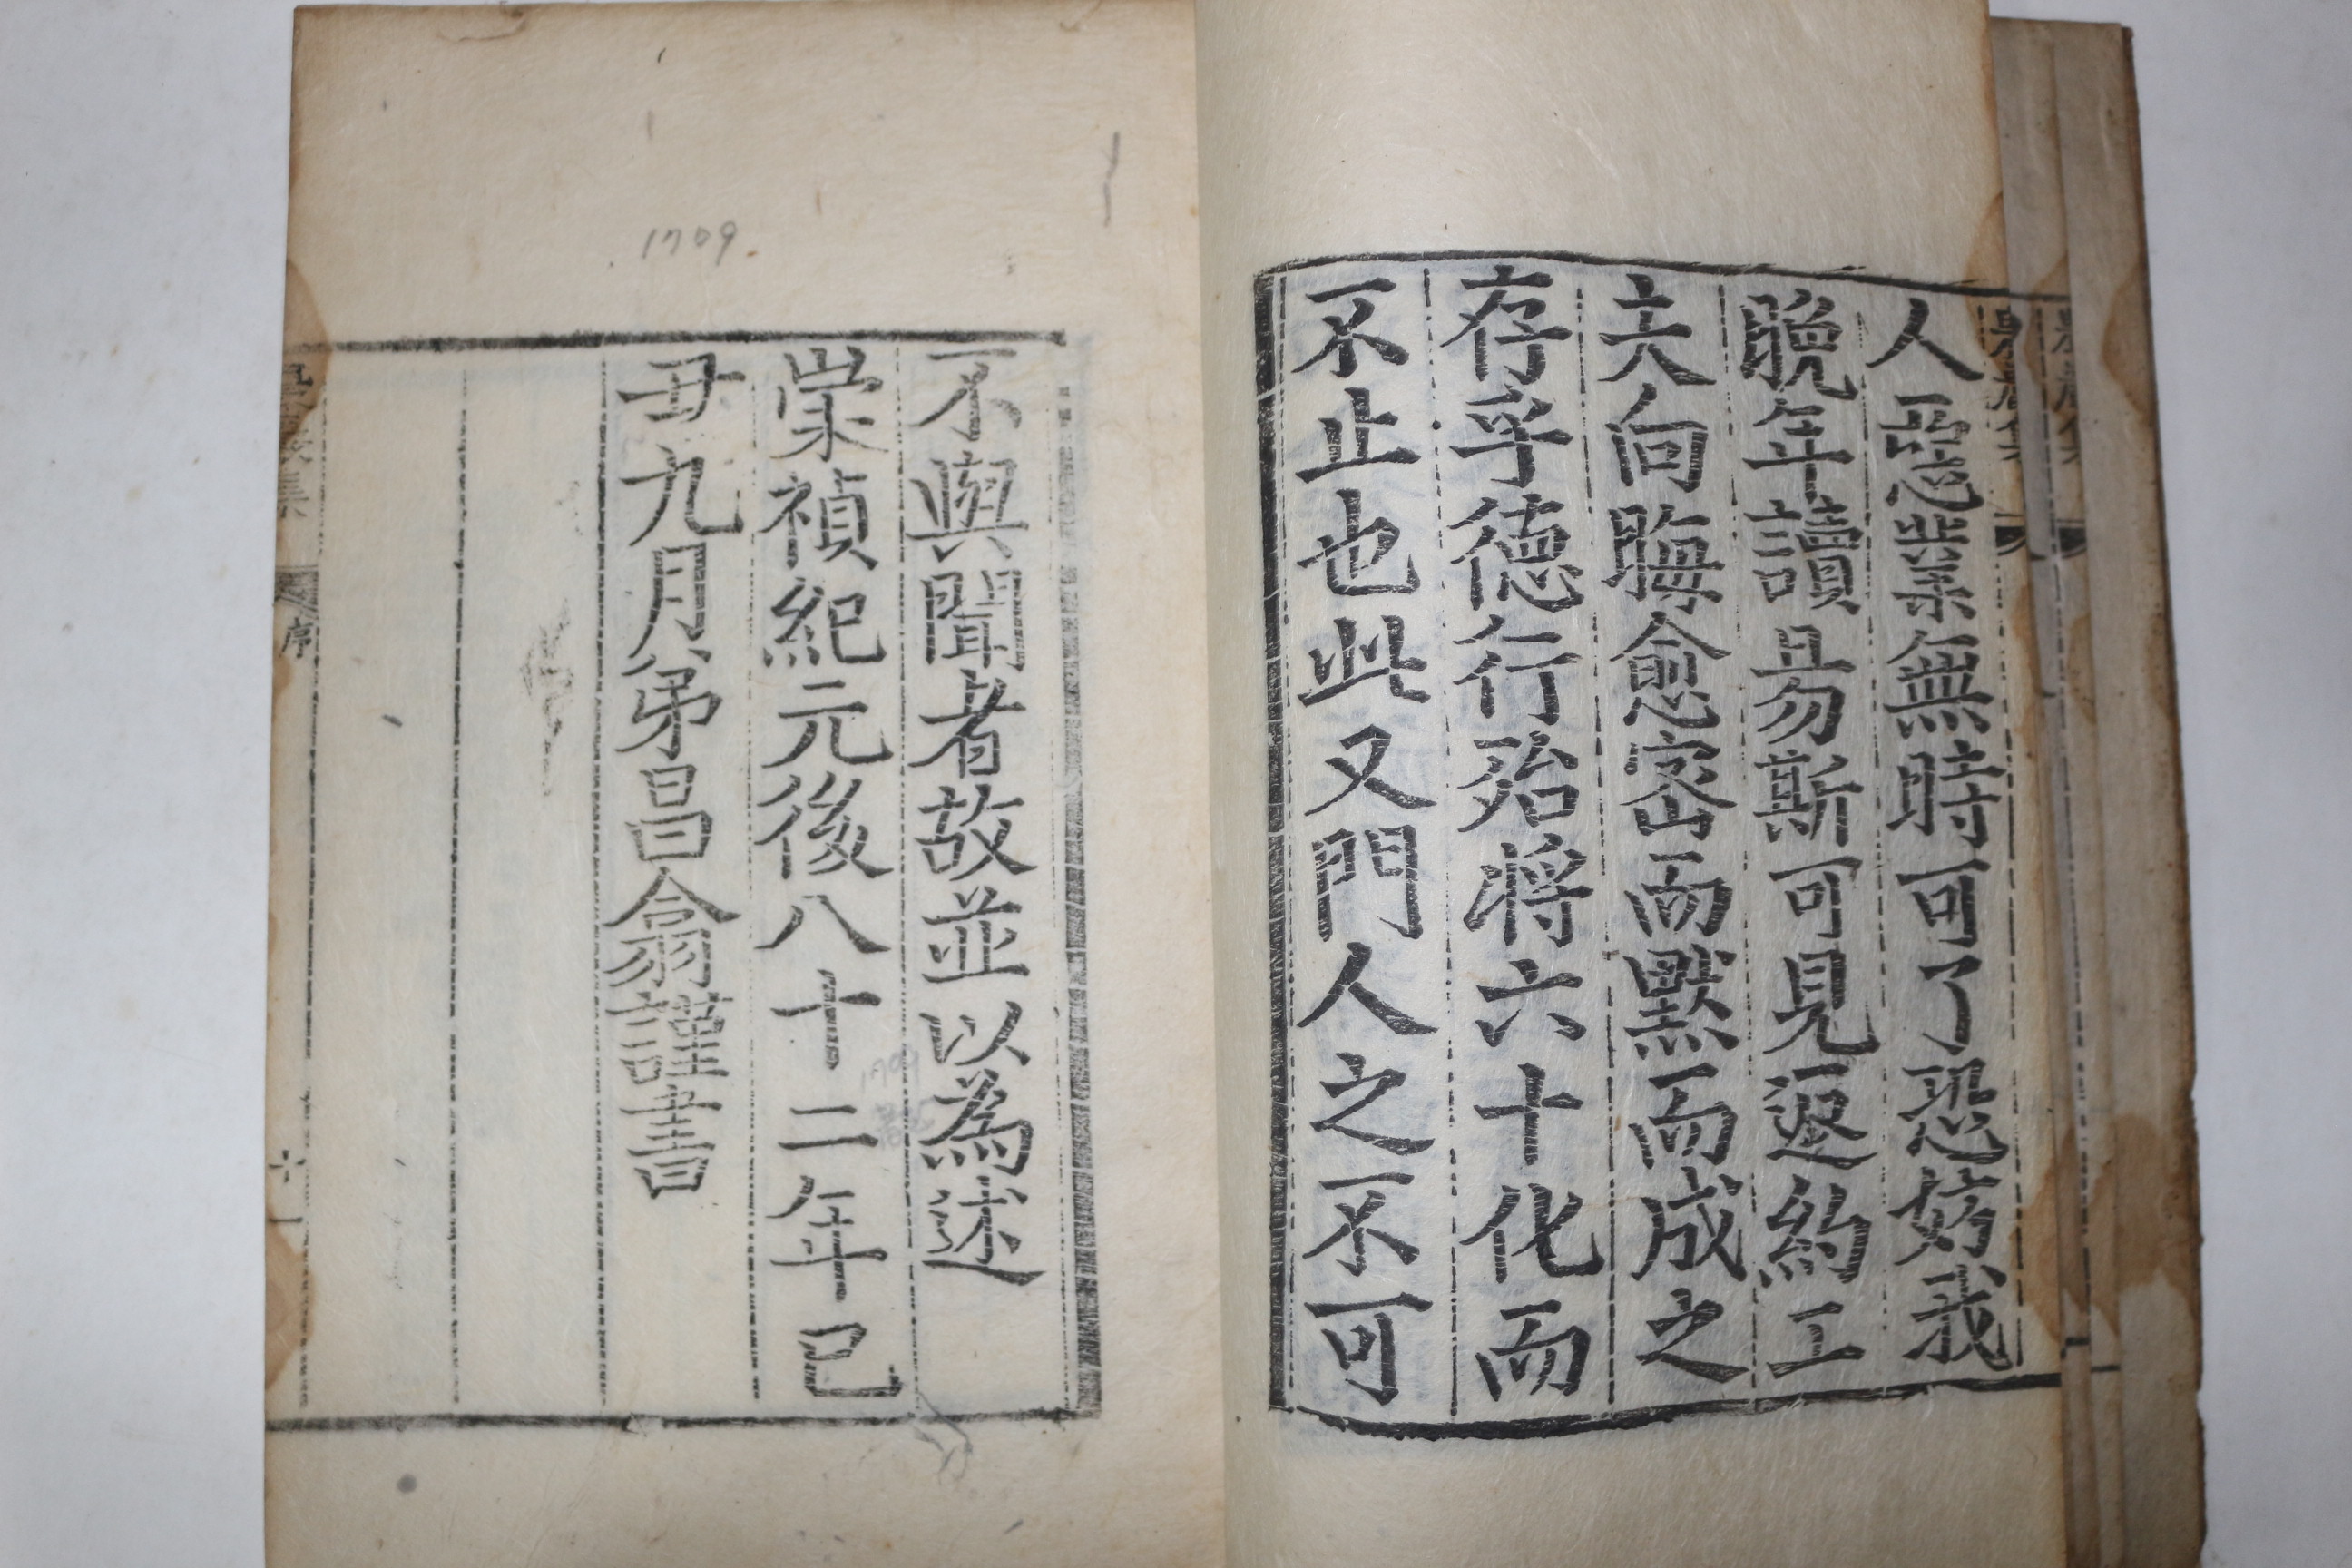 人業無時可了
晩年讀易斯可見返約工
夫向晦愈密而默而成之
存乎德行殆將六十化而
不止也此又門人之不可
1709.
不與聞者故並以為述
崇禎紀元後八十二年己
丑九月弟昌翕謹書
集 序